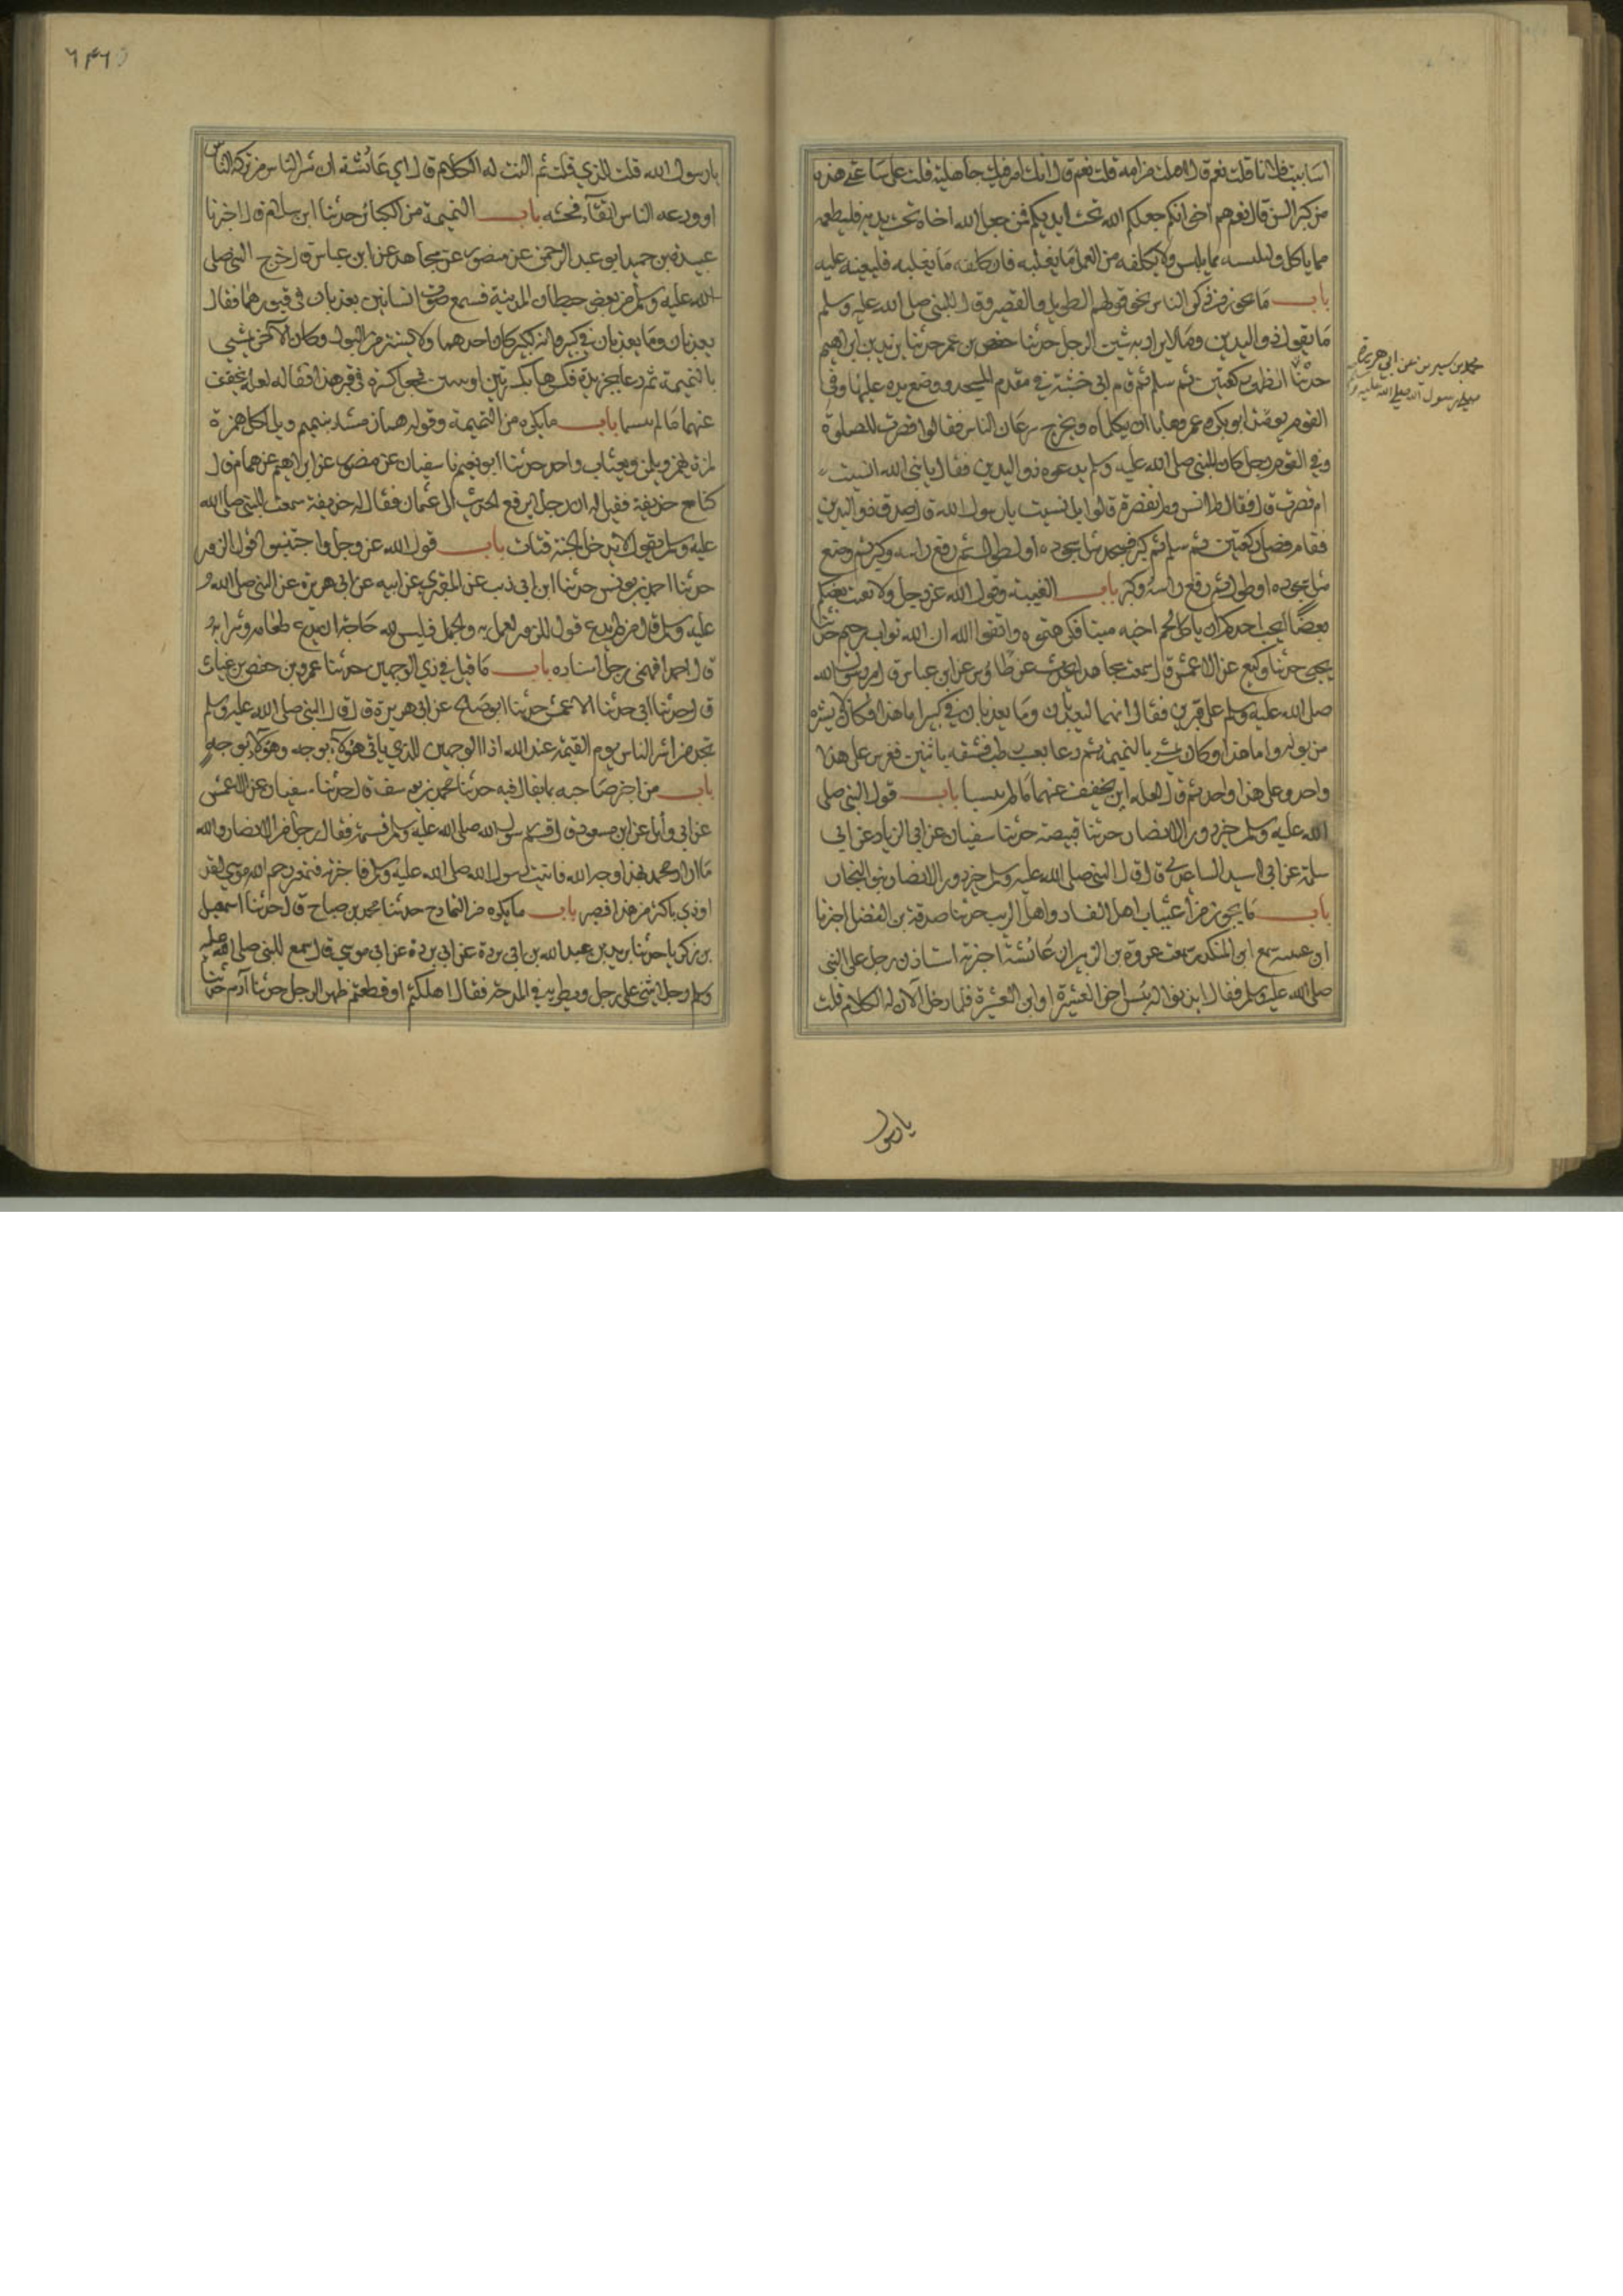 اساببت فلانا قلت نعم قال افنلت من امه قلت نعم قال انك امرؤ فيك جاهلية قلت على ساعتي هذه
من كبر السن قال نعم هم اخوانكم جعلهم الله تحت ايديكم فمن جعل الله اخاه تحت يديه فليطعمه
مما ياكل وليلبسه مما يلبس ولا يكلفه من العمل ما يغلبه فان كلفه ما يغلبه فليعنه عليه
باب ما يجوز من ذكر الناس نحو قولهم الطويل والقصير وقال النبي صلى الله عليه وسلم
ما يقول ذو اليدين وما لا يراد به شين الرجل حدثنا حفص بن عمر حدثنا يزيد بن ابراهيم
حدثنا الظهر ركعتين ثم سلم ثم قام الى خشبة في مقدم المسجد ووضع يده عليها وفي
القوم يومئذ ابو بكر وعمر فهابا ان يكلماه ويخرج سرعان الناس فقالوا قصرت الصلوة
وفي القوم رجل كان النبي صلى الله عليه وسلم يدعوه ذو اليدين فقال يا نبي الله انسيت
ام قصرت قال فقال لم انس ولم تقصر قالوا بل نسيت يا رسول الله قال صدق ذو اليدين
فقام فصلى ركعتين ثم سلم ثم كبر فسجد مثل سجوده او اطول ثم رفع راسه وكبر ثم وضع
مثل سجوده او اطول ثم رفع راسه وكبر باب الغيبة وقول الله عز وجل ولا يغتب بعضكم
بعضا ايحب احدكم ان ياكل لحم اخيه ميتا فكرهتموه واتقوا الله ان الله تواب رحيم حدثنا
يحيى حدثنا وكيع عن الاعمش قال سمعت مجاهدا يحدث عن طاوس عن ابن عباس قال مر رسول الله
صلى الله عليه وسلم على قبرين فقال انهما ليعذبان وما يعذبان في كبير اما هذا فكان لا يستتر
من بوله واما هذا فكان يمشي بالنميمة ثم دعا بعسيب رطب فشقه باثنين فغرس على هذا
واحدا وعلى هذا واحدا ثم قال لعله ان يخفف عنهما ما لم ييبسا باب قول النبي صلى
الله عليه وسلم خير دور الانصار حدثنا قبيصة حدثنا سفيان عن ابي الزناد عن ابي
سلمة عن ابي اسيد الساعدي قال قال النبي صلى الله عليه وسلم خير دور الانصار بنو النجار
باب ما يجوز من اغتياب اهل الفساد واهل الريب حدثنا صدقة بن الفضل اخبرنا
ابن عيينة سمع ابن المنكدر سمعت عروة بن الزبير ان عائشة اخبرته استاذن رجل على النبي
صلى الله عليه وسلم فقال ايذنوا له بئس اخو العشيرة او ابن العشيرة فلما دخل الان له الكلام قلت
محمد بن سيرين عن ابي هريرة
صلى رسول الله صلى الله عليه وسلم
يا رسول
٦٤٦
يا رسول الله قلت الذي قلت ثم النت له الكلام قال اي عائشة ان شر الناس من تركه الناس
او ودعه الناس اتقاء فحشه باب النميمة من الكبائر حدثنا ابن سلام قال اخبرنا
عبيدة بن حميد ابو عبد الرحمن عن منصور عن مجاهد عن ابن عباس قال خرج النبي صلى
الله عليه وسلم من بعض حيطان المدينة فسمع صوت انسانين يعذبان في قبورهما فقال
يعذبان وما يعذبان في كبير وانه لكبير كان احدهما لا يستتر من البول وكان الآخر يمشي
بالنميمة ثم دعا بجريدة فكسرها بكسرتين او ثنتين فجعل كسرة في قبر هذا فقال لعله يخفف
عنهما ما لم ييبسا باب ما يكره من النميمة وقوله هماز مشاء بنميم ويل لكل همزة
لمزة يهمز ويلمز ويعيب واحد حدثنا ابو نعيم نا سفيان عن منصور عن ابراهيم عن همام قال
كنا مع حذيفة فقيل له ان رجلا يرفع الحديث الى عثمان فقال له حذيفة سمعت النبي صلى الله
عليه وسلم يقول لا يدخل الجنة قتات باب قول الله عز وجل واجتنبوا قول الزور
حدثنا احمد بن يونس حدثنا ابن ابي ذئب عن المقبري عن ابيه عن ابي هريرة عن النبي صلى الله
عليه وسلم قال من لم يدع قول الزور والعمل به والجهل فليس لله حاجة ان يدع طعامه وشرابه
قال احمد افهمني رجل اسناده باب ما قيل في ذي الوجهين حدثنا عمر بن حفص بن غياث
قال حدثنا ابي حدثنا الاعمش حدثنا ابو صالح عن ابي هريرة قال قال النبي صلى الله عليه وسلم
تجد من اشر الناس يوم القيمة عند الله ذا الوجهين الذي ياتي هؤلاء بوجه وهؤلاء بوجه
باب من اخبر صاحبه بما يقال فيه حدثنا محمد بن يوسف قال حدثنا سفيان عن الاعمش
عن ابي وائل عن ابن مسعود قال قسم رسول الله صلى الله عليه وسلم قسمة فقال رجل من الانصار والله
ما اراد محمد بهذا وجه الله فاتيت رسول الله صلى الله عليه وسلم فاخبرته فتمعر رحم الله موسى لقد
اوذي باكثر من هذا فصبر باب ما يكره من التمادح حدثنا محمد بن صباح قال حدثنا اسمعيل
بن زكريا حدثنا بريد بن عبد الله بن ابي بردة عن ابي بردة عن ابي موسى قال سمع النبي صلى الله عليه
وسلم رجلا يثني على رجل ويطريه في المدحة فقال اهلكتم او قطعتم ظهر الرجل حدثنا آدم حدثنا